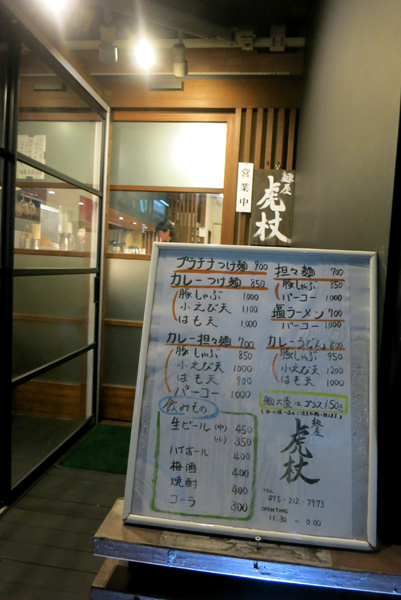 営業中
麺屋
虎杖
プラチナつけ麺 900
カレーつけ麺 850
豚しゃぶ 1000
小えび天 1100
はも天 1000
カレー担々麺 700
豚しゃぶ 850
小えび天 1000
はも天 900
パーコー 1000
飲みもの
生ビール (中) 450
(小) 350
ハイボール 400
梅酒 400
焼酎 400
コーラ 300
担々麺 700
豚しゃぶ 850
パーコー 1000
塩ラーメン 700
パーコー 1000
カレーうどん 800
豚しゃぶ 950
小えび天 1200
はも天 1000
麺大盛はプラス150
麺屋
虎杖
TEL
075-212-7973
OPEN TIME
11:30 - 0:00